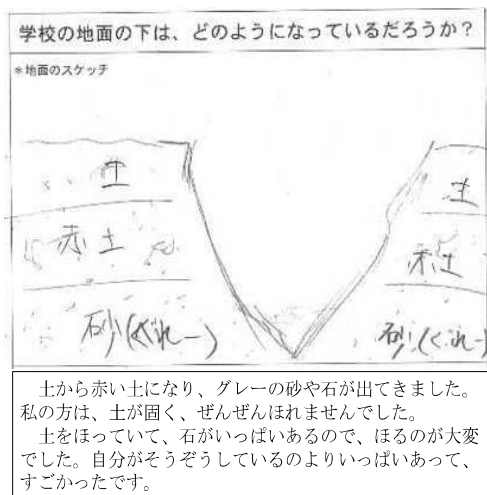 学校の地面の下は、どのようになっているだろうか？
＊地面のスケッチ
土
土
赤土
赤土
砂(ぐれー)
砂(ぐれー)
土から赤い土になり、グレーの砂や石が出てきました。
私の方は、土が固く、ぜんぜんほれませんでした。
土をほっていて、石がいっぱいあるので、ほるのが大変
でした。自分がそうぞうしているのよりいっぱいあって、
すごかったです。